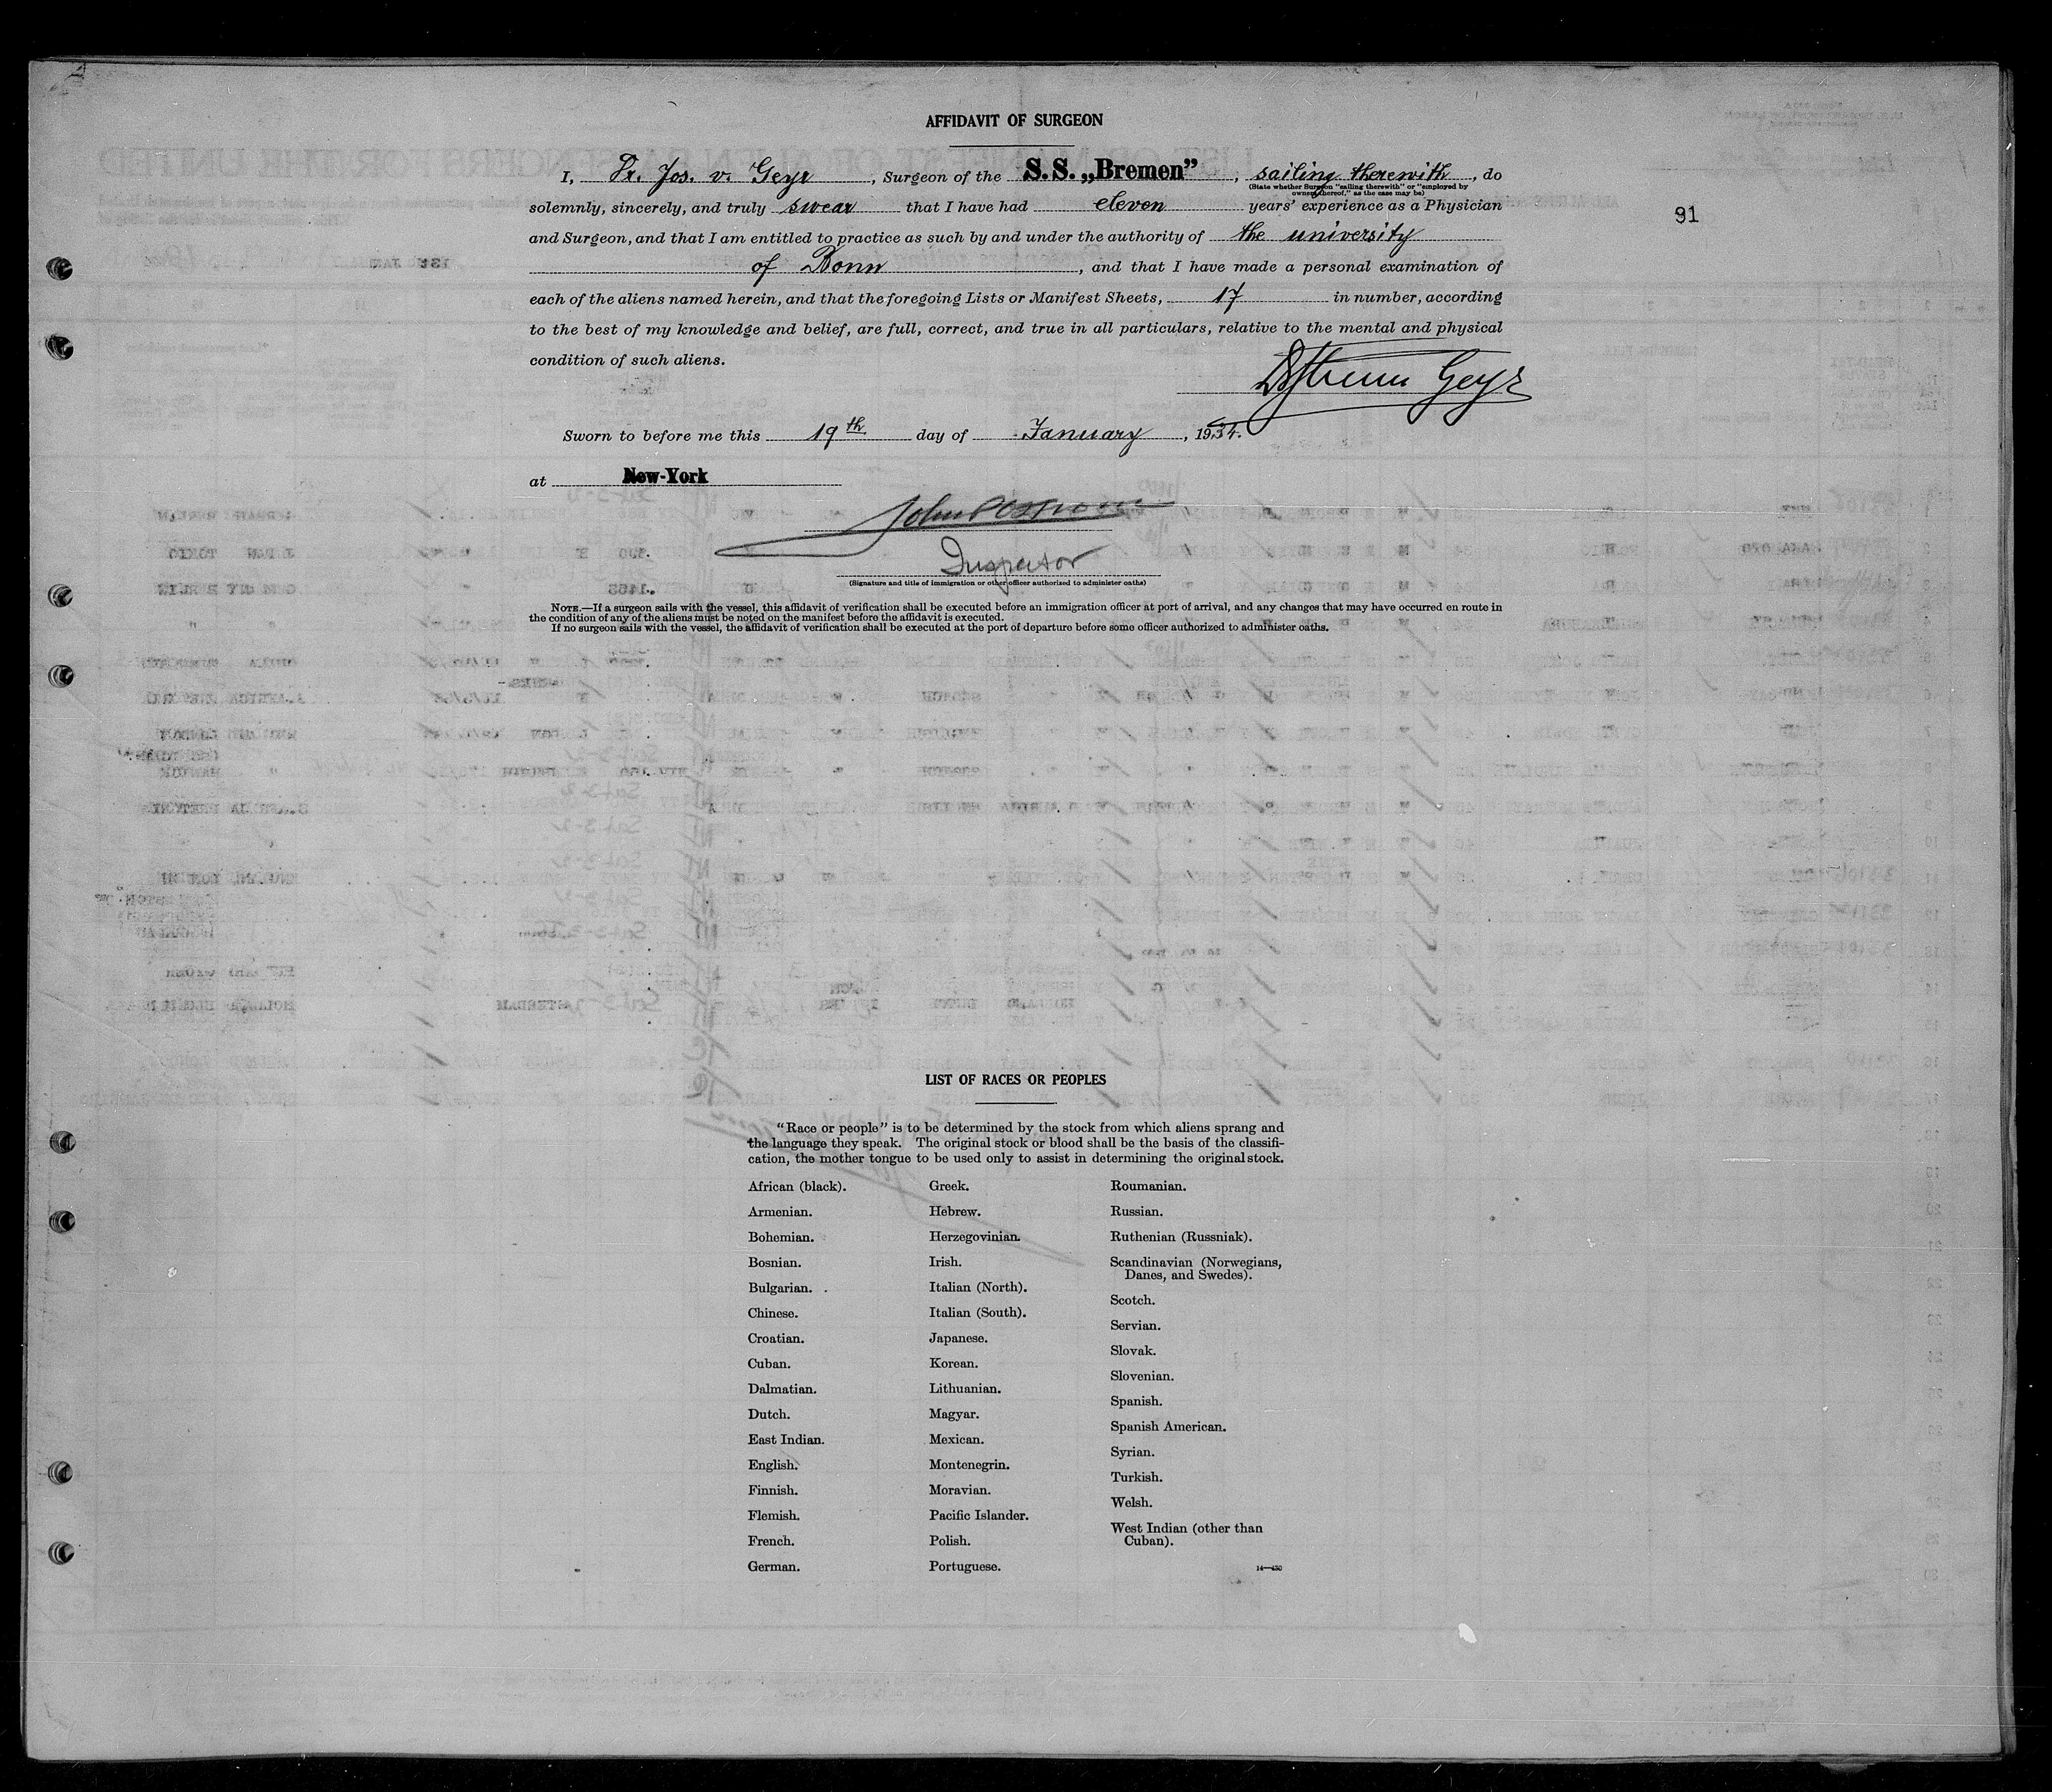 AFFIDAVIT OF SURGEON
I, Dr. Jos. v. Geyr, Surgeon of the S.S. „Bremen”, sailing therewith, do
(State whether Surgeon "sailing therewith" or "employed by
owners thereof," as the case may be)
solemnly, sincerely, and truly swear that I have had eleven years' experience as a Physician
91
and Surgeon, and that I am entitled to practice as such by and under the authority of the university
of Bonn, and that I have made a personal examination of
each of the aliens named herein, and that the foregoing Lists or Manifest Sheets, 17 in number, according
to the best of my knowledge and belief, are full, correct, and true in all particulars, relative to the mental and physical
condition of such aliens.
Geyr
Sworn to before me this 19th day of January, 1934.
at New-York
John
Inspector
(Signature and title of immigration or other officer authorized to administer oaths)
NOTE.—If a surgeon sails with the vessel, this affidavit of verification shall be executed before an immigration officer at port of arrival, and any changes that may have occurred en route in
the condition of any of the aliens must be noted on the manifest before the affidavit is executed.
If no surgeon sails with the vessel, the affidavit of verification shall be executed at the port of departure before some officer authorized to administer oaths.
LIST OF RACES OR PEOPLES
"Race or people" is to be determined by the stock from which aliens sprang and
the language they speak. The original stock or blood shall be the basis of the classifi-
cation, the mother tongue to be used only to assist in determining the original stock.
African (black).
Armenian.
Bohemian.
Bosnian.
Bulgarian.
Chinese.
Croatian.
Cuban.
Dalmatian.
Dutch.
East Indian.
English.
Finnish.
Flemish.
French.
German.
Greek.
Hebrew.
Herzegovinian.
Irish.
Italian (North).
Italian (South).
Japanese.
Korean.
Lithuanian.
Magyar.
Mexican.
Montenegrin.
Moravian.
Pacific Islander.
Polish.
Portuguese.
Roumanian.
Russian.
Ruthenian (Russniak).
Scandinavian (Norwegians,
Danes, and Swedes).
Scotch.
Servian.
Slovak.
Slovenian.
Spanish.
Spanish American.
Syrian.
Turkish.
Welsh.
West Indian (other than
Cuban).
14—430